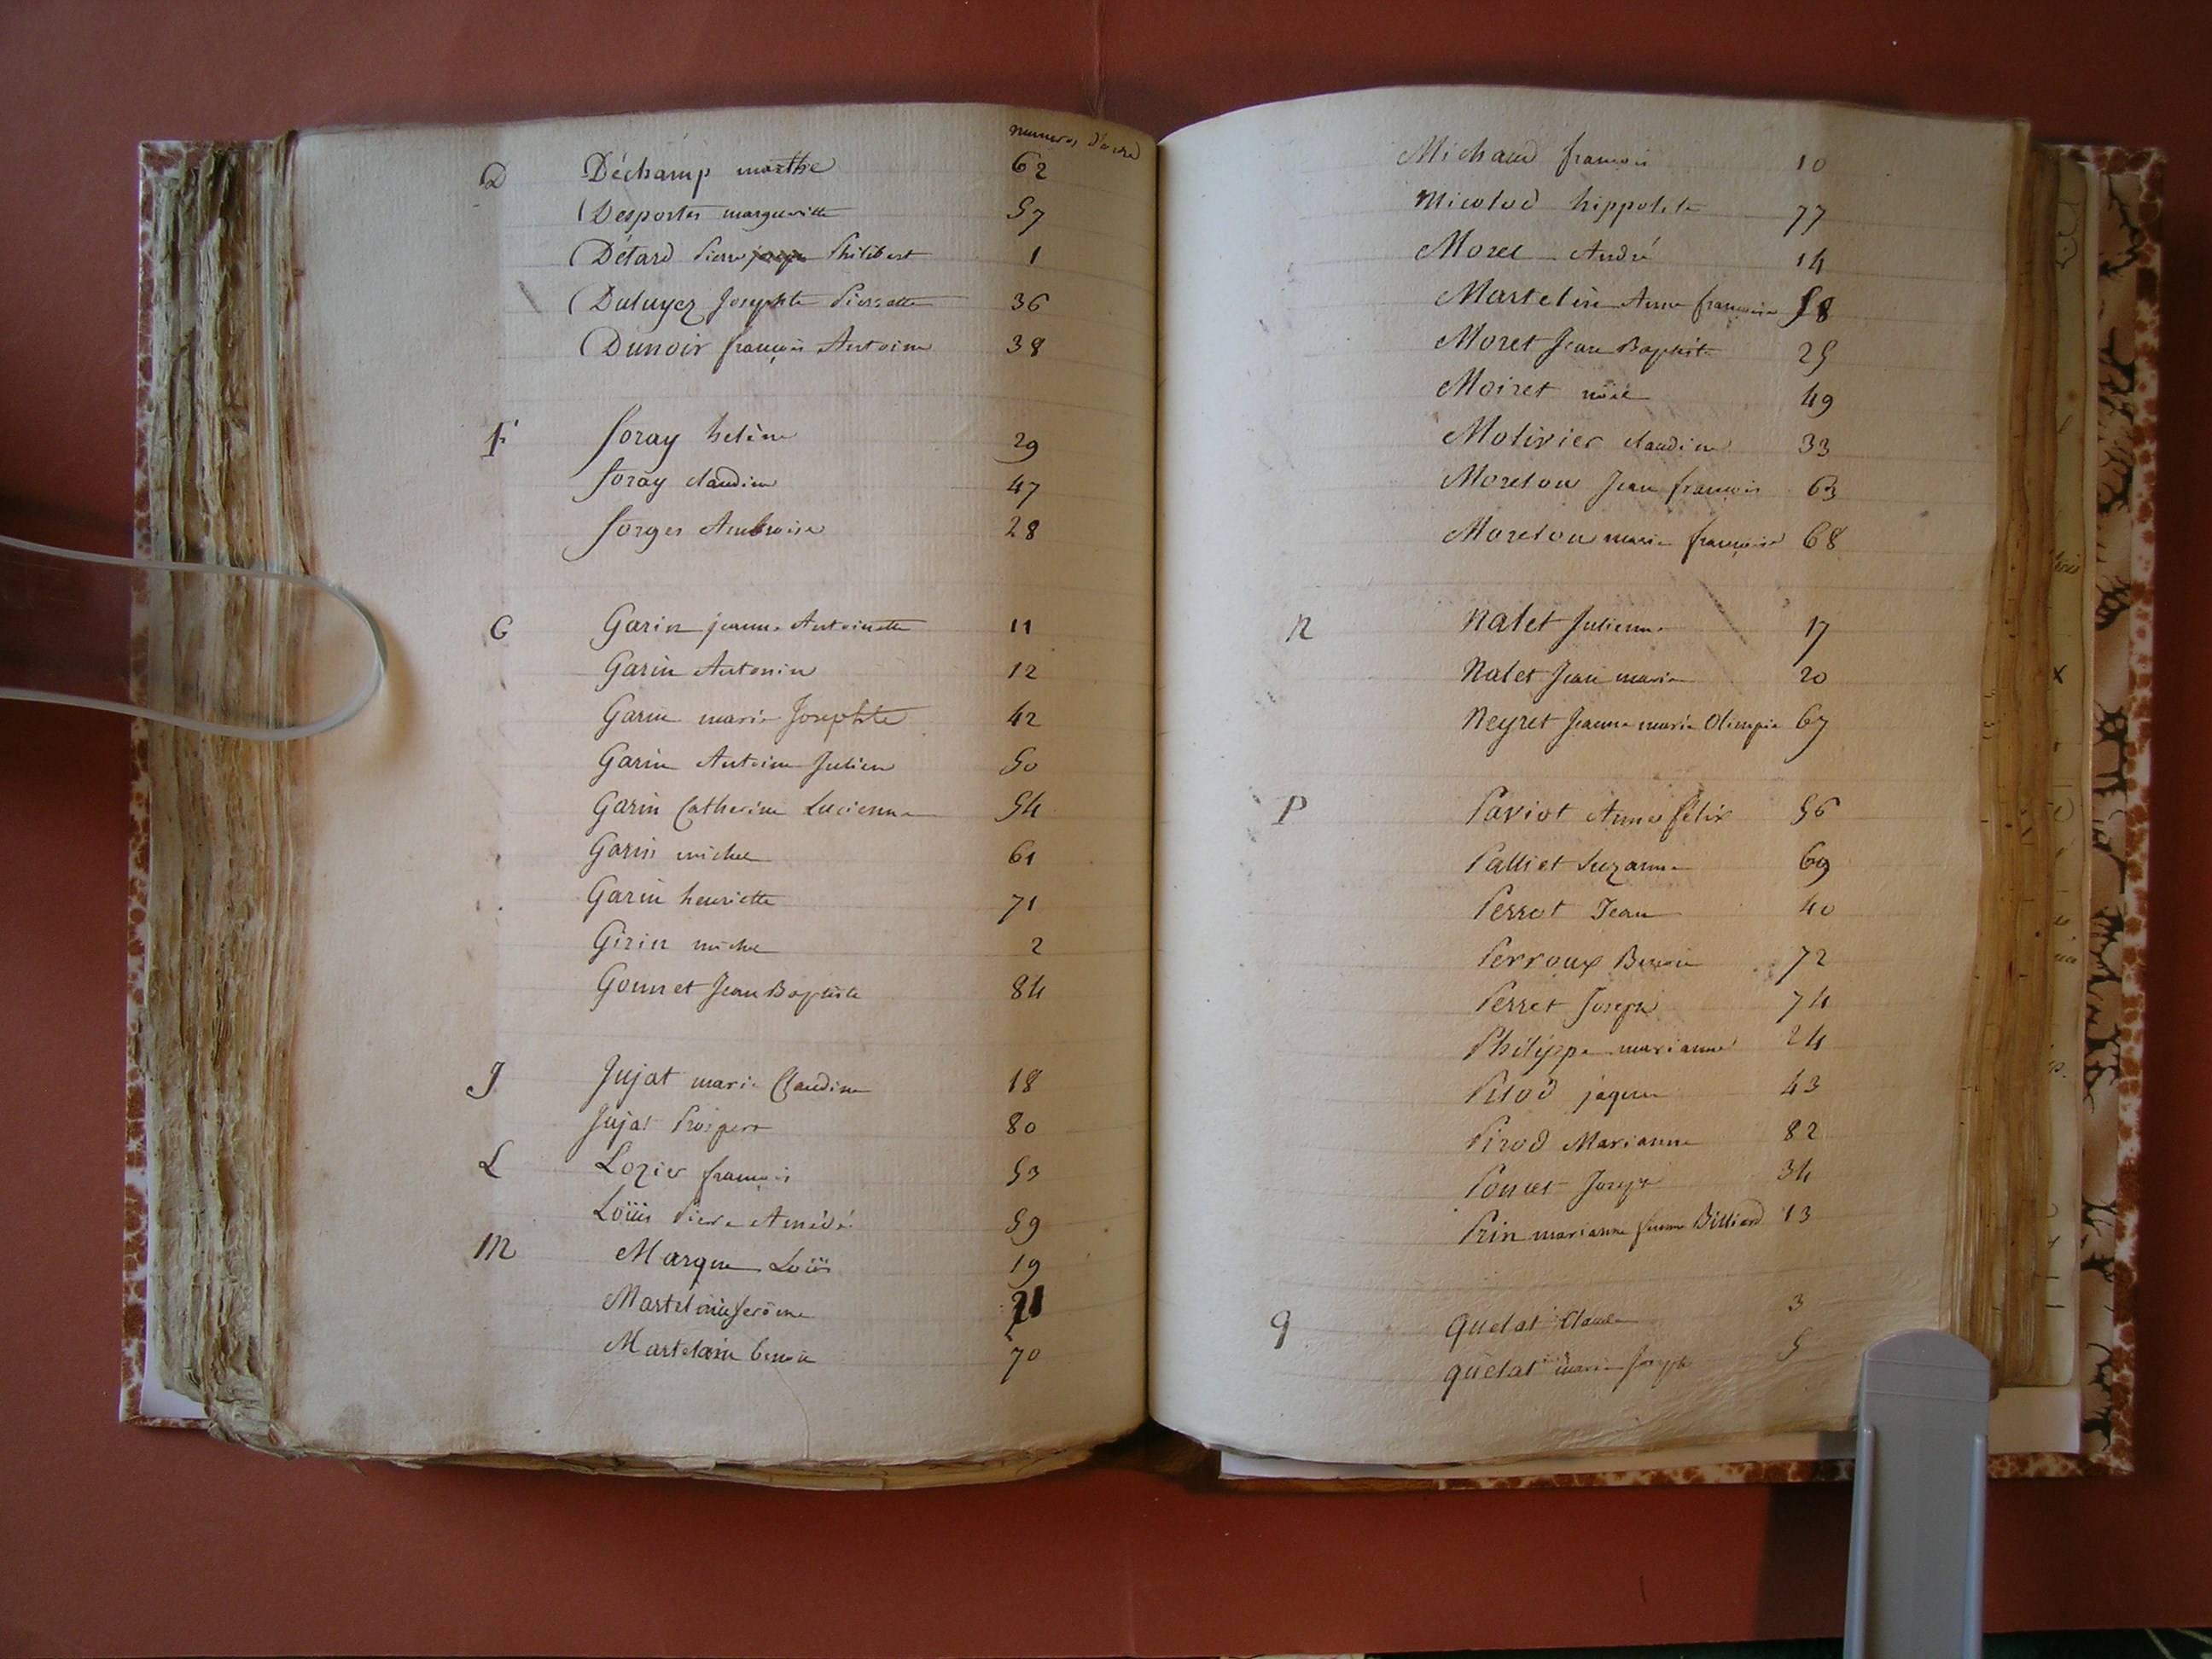 numeros d'ordre
D Déchamp marthe 62
Desportes margueritte 57
Détard Pierre joseph Philibert 1
Duluyez Josephte Pierrette 36
Dunoir françois Antoine 38
F foray helène 29
foray claudine 47
forges Ambroise 28
G Garin jeanne Antoinette 11
Garin Antonin 12
Garin marie Josephte 42
Garin Antoine Julien 50
Garin Catherine Lucienne 54
Garin michel 61
Garin henriette 71
Girin michel 2
Gonnet Jean Baptiste 84
J Jujat marie Claudine 18
Jujat Prosper 80
L Lozier françois 53
Loüis Pierre Amédé 59
M Marque Loüis 19
Martelain Jerôme 21
Martelain benoit 70
Michaud francois 10
Micolod hippolite 77
Morel André 14
Martelin Anne francoise 58
Moret Jean Baptiste 25
Moiret noël 49
Molivier claudine 33
Morelon Jean françois 63
Morelon marie françoise 68
N Nalet Julienne 17
Nalet Jean marie 20
Neyret Jeanne marie Olimpie 67
P Paviot Anne félix 56
Palliet Suzanne 69
Perrot Jean 40
Perroux Benoit 72
Perret Joseph 74
Philippe marianne 24
Pirod jaques 43
Pirod Marianne 82
Poncet Joseph 34
Prin marianne femme Billiard 13
q quelat Claude 3
quelat marie Joseph 5